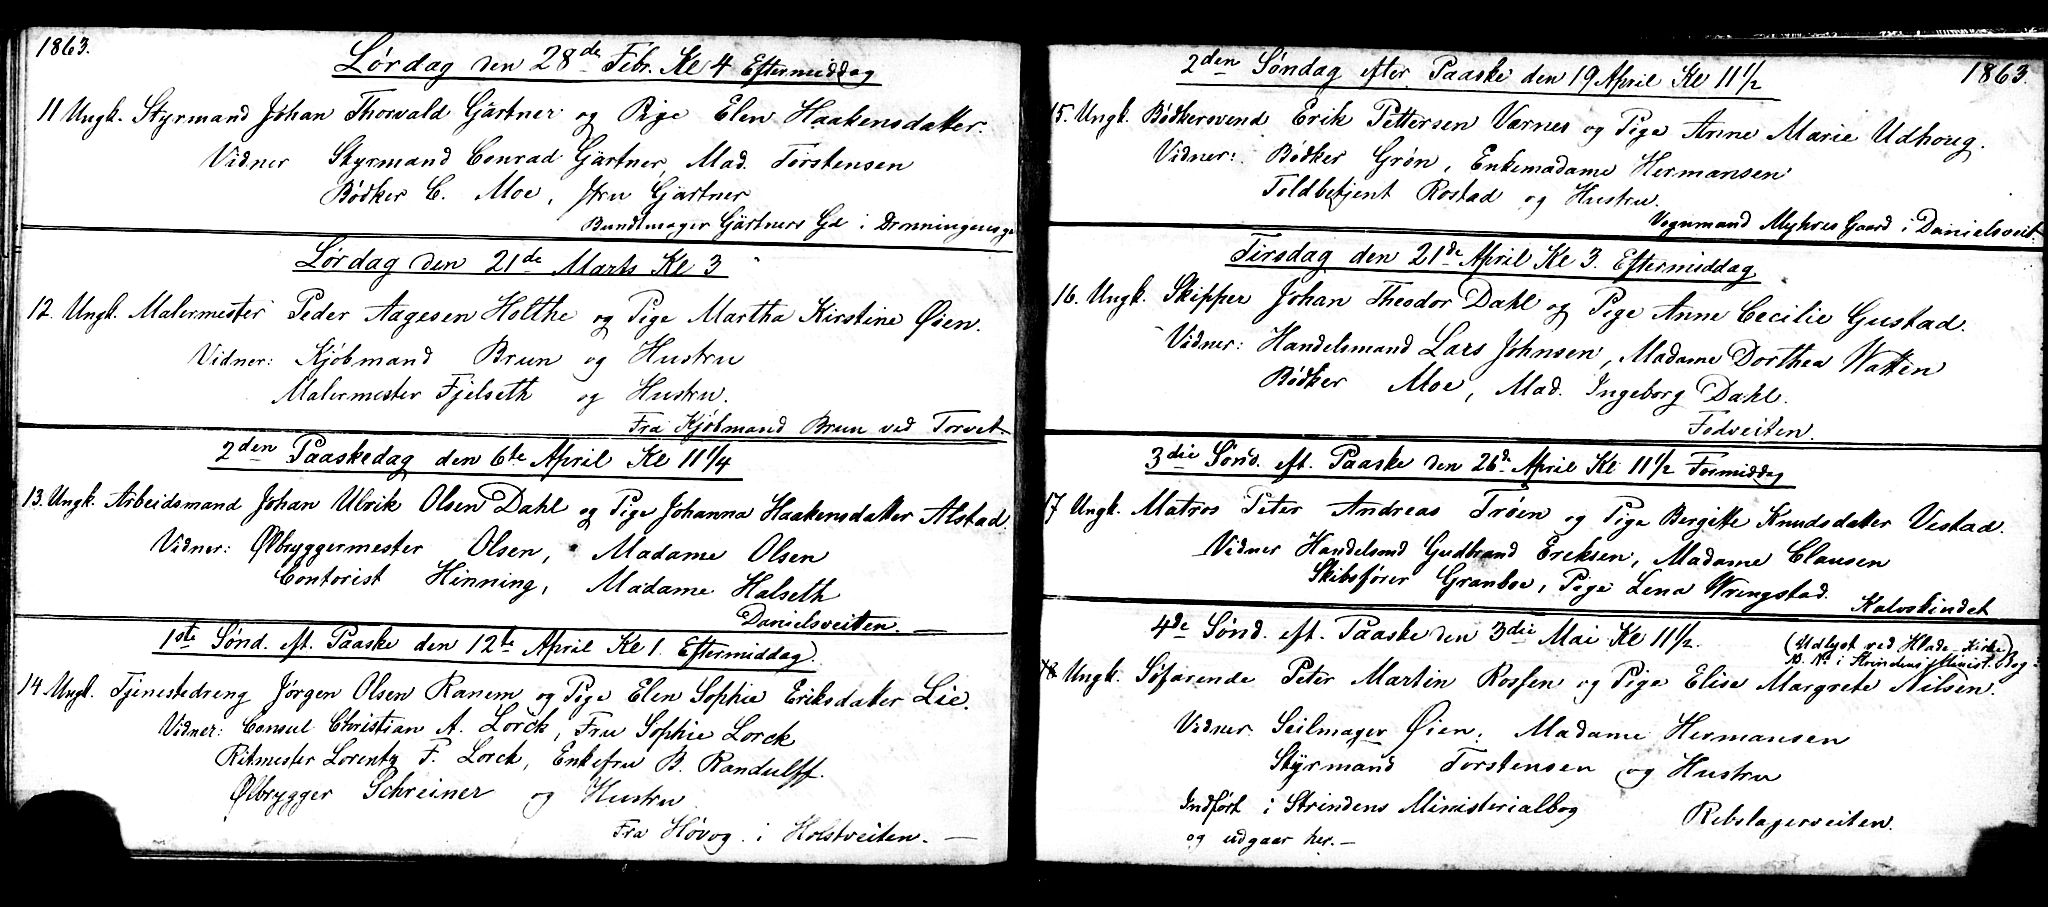 1863.
Lørdag den 28de Febr. Kl 4 Eftermiddag
11 Ungk. Styrmand Johan Thorvald Gärtner og Pige Elen Haakensdatter.
Vidner Styrmand Conrad Gärtner, Mad. Torstensen
Bødker C. Moe, Fru Gjärtner
Bundtmager Gärtners Gd i Dronningensg
Lørdag den 21de Marts Kl 3
12. Ungk. Malermester Peder Aagesen Holthe og Pige Martha Kirstine Øien.
Vidner: Kjøbmand Brun og Hustru
Malermester Fjelseth og Hustru.
Fra Kjøbmand Brun ved Torvet.
2den Paaskedag den 6te April Kl 11 1/4
13. Ungk. Arbeidsmand Johan Ulrik Olsen Dahl og Pige Johanna Haakensdatter Alstad.
Vidner: Ølbryggermester Olsen, Madame Olsen
Contorist Hinning, Madame Halseth
Danielsveiten.
1ste Sønd. eft. Paaske den 12te April Kl 1. Eftermiddag.
14. Ungk. Tjenestedreng Jørgen Olsen Ranem og Pige Elen Sophie Eriksdatter Lie.
Vidner: Consul Christian A. Lorck, Fru Sophie Lorck
Ritmester Lorentz F. Lorck, Enkefru B. Randulff.
Ølbrygger Schreiner og Hustru
Fra Høvog i Holstveiten. —
2den Søndag efter Paaske den 19 April Kl 11 1/2
1863.
15. Ungk. Bødkersvend Erik Pettersen Varnes og Pige Anne Marie Udhoug.
Vidner: Bødker Grøn, Enkemadame Hermansen
Toldbetjent Rostad og Hustru.
Vognmand Myhres Gaard i Danielsveit.
Tirsdag den 21de April Kl 3. Eftermiddag
16. Ungk. Skipper Johan Theodor Dahl og Pige Anne Cecilie Gustad.
Vidner: Handelsmand Lars Johnsen, Madame Dorthea Watten
Bødker Moe, Mad. Ingeborg Dahl.
Fedveiten.
3die Sønd. eft. Paaske den 26de April Kl 11 1/2 Formiddag
17 Ungk. Matros Peter Andreas Trøen og Pige Bergitte Knudsdatter Vestad.
Vidner Handelsmd Gudbrand Ereksen, Madame Clausen
Skibsfører Granboe, Pige Lena Wringstad.
Kalvskindet
4de Sønd. eft. Paaske den 3die Mai Kl 11 1/2.
(Udlyst ved Hlade-Kirke
N. No i Strindens Minist. Bog
18 Ungk. Søfarende Peter Martin Rosfen og Pige Elise Margrete Nilsen.
Vidner Seilmager Øien, Madame Hermansen
Styrmand Torstensen og Hustru
Indført i Strindens Ministerialbog
Rebslagerveiten.
og udgaar her. —